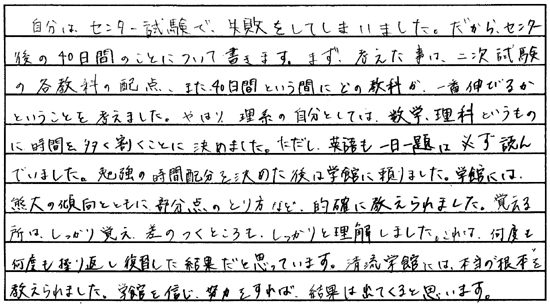 自分は、センター試験で、失敗をしてしまいました。だから、センター
後の40日間のことについて書きます。まず、考えた事は、二次試験
の各教科の配点、また40日間という間にどの教科が、一番伸びるか
ということを考えました。やはり理系の自分としては、数学、理科というもの
に時間を多く割くことに決めました。ただし、英語も一日一題は必ず読ん
でいました。勉強の時間配分を決めた後は学館に頼りました。学館には、
熊大の傾向とともに、部分点のとり方など、的確に教えられました。覚える
所は、しっかり覚え、差のつくところも、しっかりと理解しました。これは、何度も
何度も繰り返し復習した結果だと思っています。清流学館には、本当の"根本"を
教えられました。学館を信じ、努力をすれば、結果は出てくると思います。